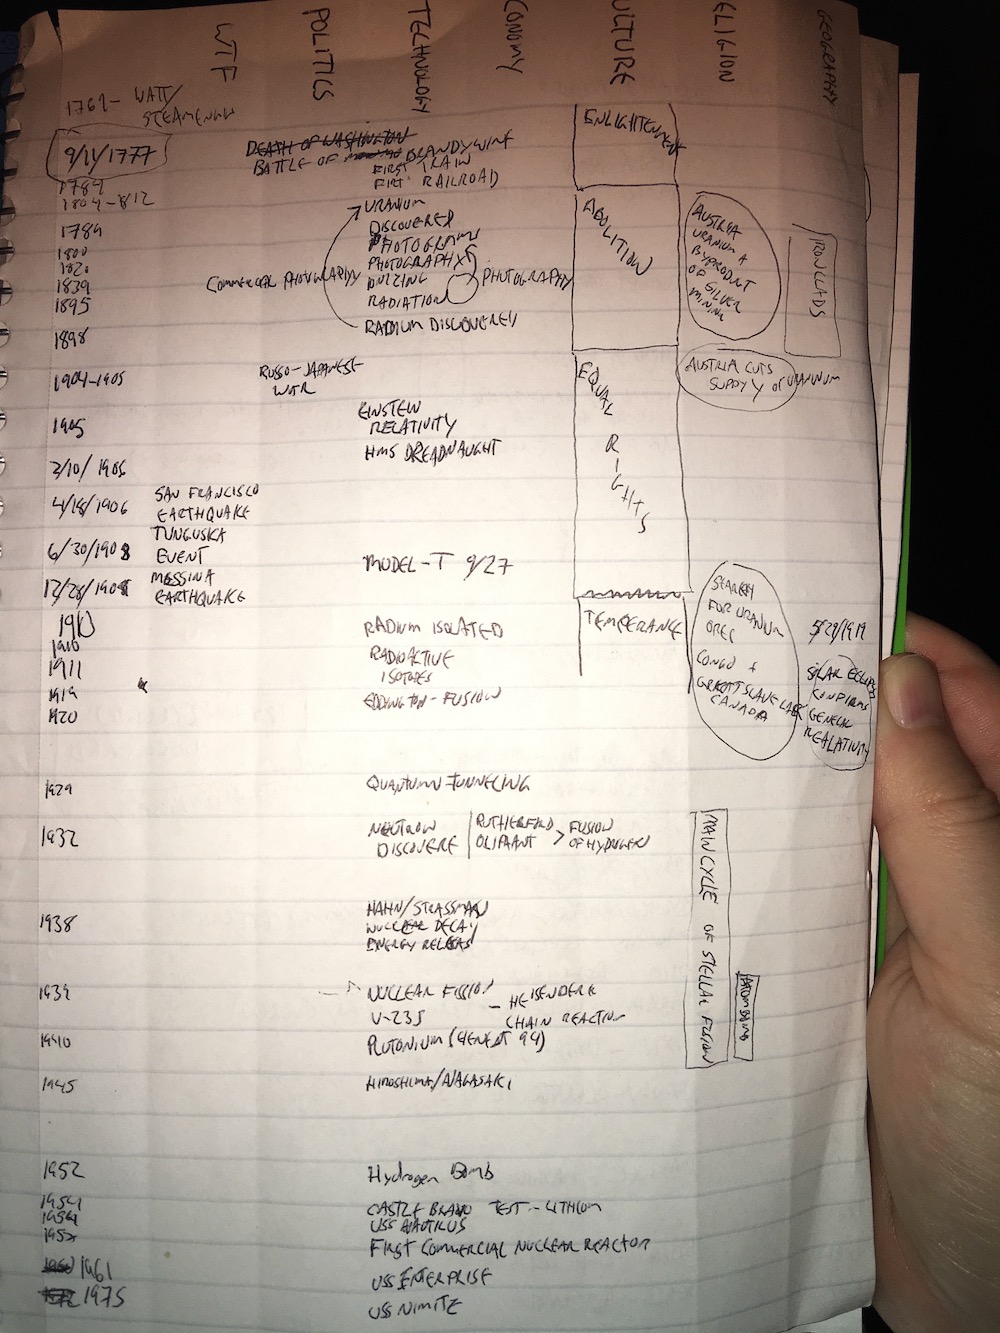 WTF
POLITICS
TECHNOLOGY
CONOMY
ULTURE
ELIGION
GEOGRAPHY
1769- WATT/
STEAMENGN
9/11/1777
DEATH OF WASHINGTON
BATTLE OF BRANDYWINE
1784
FIRST TRAIN
1804-812
FIRST RAILROAD
1789
URANIUM
DISCOVERED
1800
PHOTOGRAMS
1820
PHOTOGRAPHY
1839
COMMERCIAL PHOTOGRAPHY
IONIZING
PHOTOGRAPHY
1895
RADIATION
1898
RADIUM DISCOVERED
ENLIGHTENMENT
ABOLITION
AUSTRIA
URANIUM A
BYPRODUCT
OF SILVER
MINING
IRONCLADS
1904-1905
RUSSO-JAPANESE
WAR
AUSTRIA CUTS
SUPPLY OF URANIUM
1905
EINSTEIN
RELATIVITY
EQUAL
RIGHTS
2/10/1906
HMS DREADNAUGHT
4/18/1906
SAN FRANCISCO
EARTHQUAKE
6/30/1908
TUNGUSKA
EVENT
MODEL-T 9/27
12/28/1908
MESSINA
EARTHQUAKE
1910
1910
RADIUM ISOLATED
TEMPERANCE
1911
RADIOACTIVE
ISOTOPES
1919
1920
EDDINGTON-FUSION
SEARCH
FOR URANIUM
ORES
CONGO +
GREAT SLAVE LAKE
CANADA
5/29/1919
SOLAR ECLIPSE
KONFIRMS
GENERAL
REALATIVITY
1929
QUANTUM TUNNELING
1932
NEUTRON
DISCOVERE
RUTHERFORD
OLIPHANT
> FUSION
OF HYDROGEN
MAIN CYCLE OF STELLAR FUSION
1938
HAHN/STRASSMAN
NUCLEAR DECAY
ENERGY RELEAS
1939
NUCLEAR FISSION
U-235
- HEISENBERG
CHAIN REACTION
ATOM BOMB
1940
PLUTONIUM (94)
1945
HIROSHIMA/NAGASAKI
1952
Hydrogen Bomb
1954
CASTLE BRAVO TEST - LITHIUM
1954
USS NAUTILUS
FIRST COMMERCIAL NUCLEAR REACTOR
1961
USS ENTERPRISE
1975
USS NIMITZ